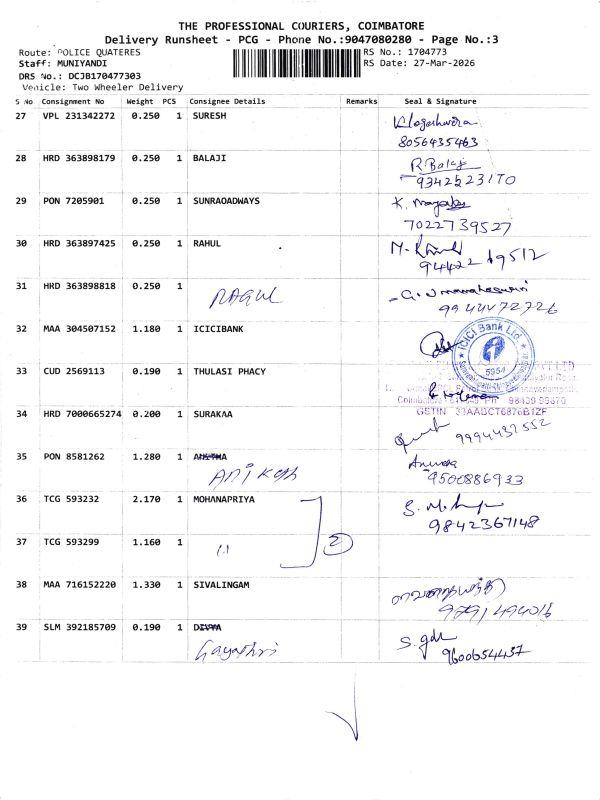 THE PROFESSIONAL COURIERS, COIMBATORE
Delivery Runsheet - PCG - Phone No.:9047080280 - Page No.:3
Route: POLICE QUATERES
RS No.: 1704773
Staff: MUNIYANDI
RS Date: 27-Mar-2026
DRS No.: DCJB170477303
Vehicle: Two Wheeler Delivery
S No Consignment No Weight PCS Consignee Details Remarks Seal & Signature
27 VPL 231342272 0.250 1 SURESH
8056435463
28 HRD 363898179 0.250 1 BALAJI R Balaji
9342223170
29 PON 7205901 0.250 1 SUNRAOADWAYS K.
7022739527
30 HRD 363897425 0.250 1 RAHUL
31 HRD 363898818 0.250 1 RAGUL G. Umamaheswari
32 MAA 304507152 1.180 1 ICICIBANK
ICICI Bank Ltd.
5954
33 CUD 2569113 0.190 1 THULASI PHACY
GSTIN 33AABCT6876B1ZF
34 HRD 7000665274 0.200 1 SURAKAA
9994437552
35 PON 8581262 1.280 1 ANIKESH
9500886933
36 TCG 593232 2.170 1 MOHANAPRIYA
9842367148
37 TCG 593299 1.160 1 2
38 MAA 716152220 1.330 1 SIVALINGAM
39 SLM 392185709 0.190 1 DIVYA
Gayathri
9600654437